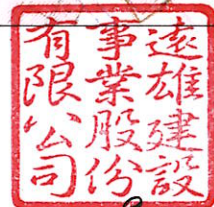 遠雄建設
事業股份
有限公司